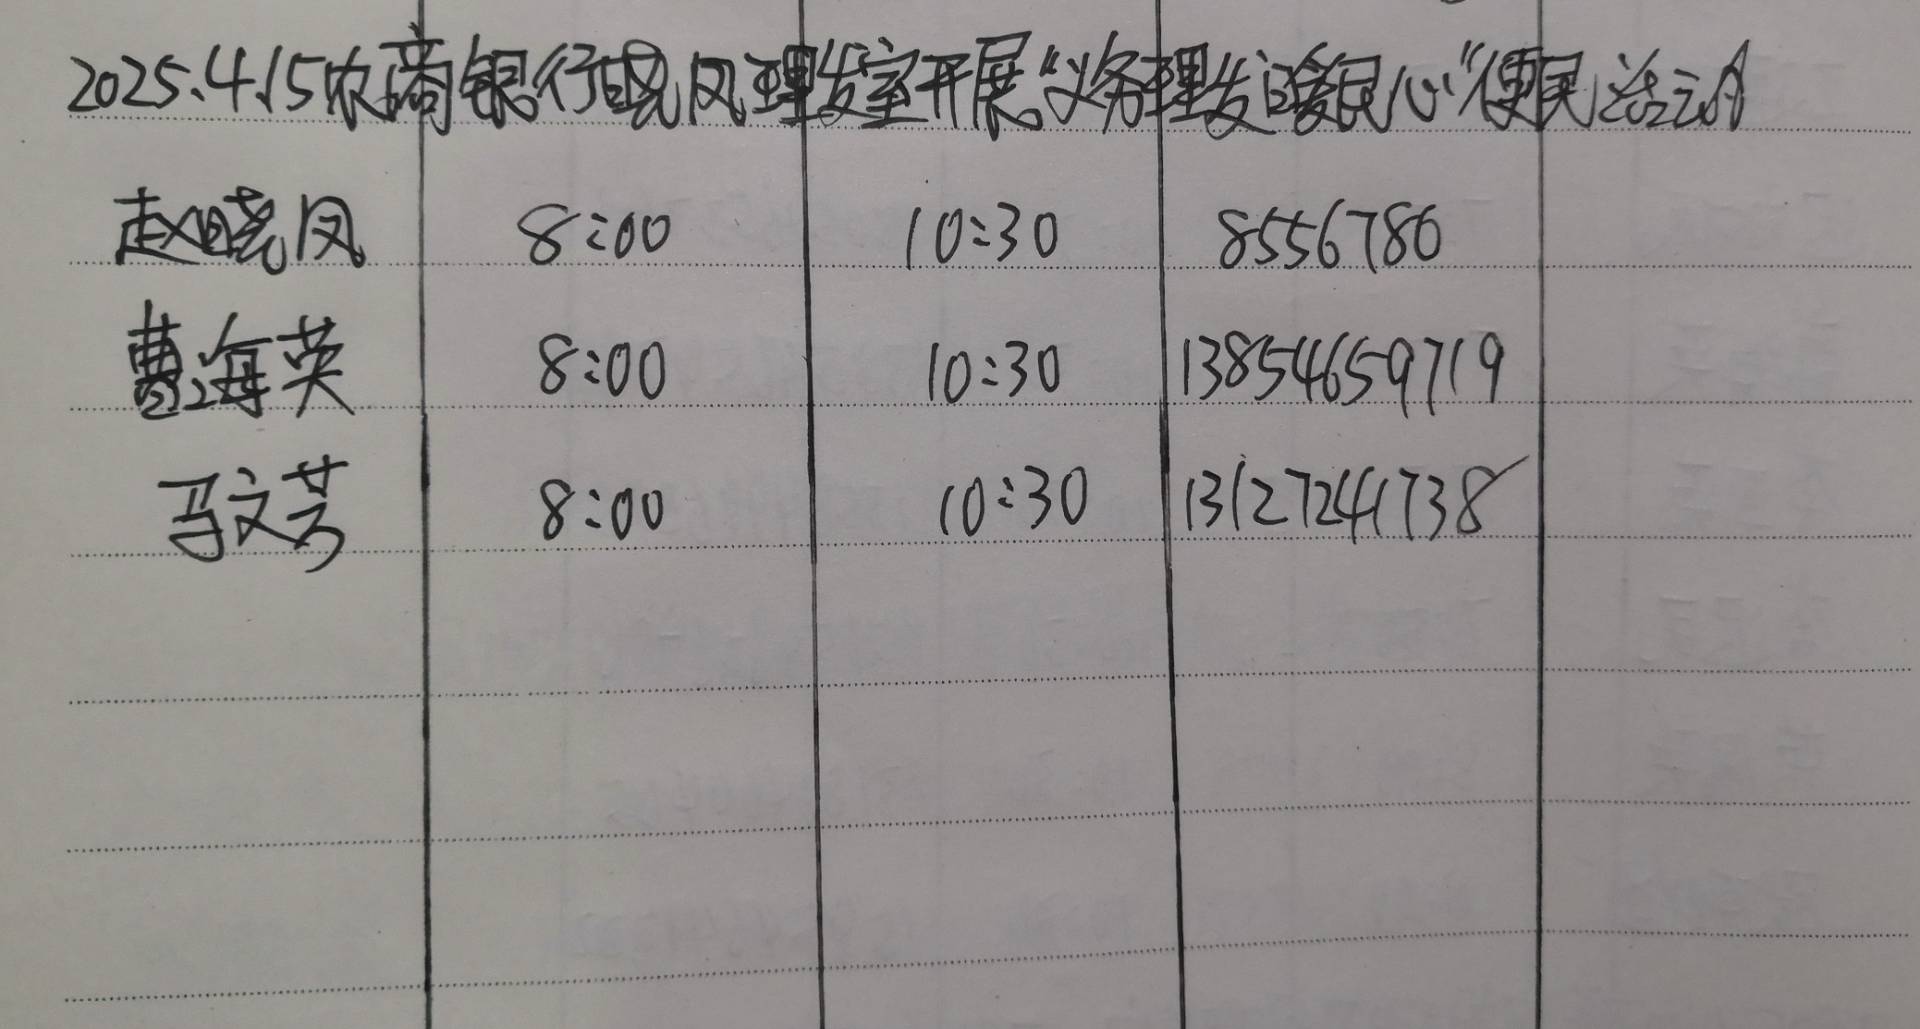 2025.4.15农商银行晓凤理发室开展“义务理发暖民心”便民活动
赵晓凤 8:00 10:30 8556786
曹海英 8:00 10:30 13854659719
马文芳 8:00 10:30 13127241738